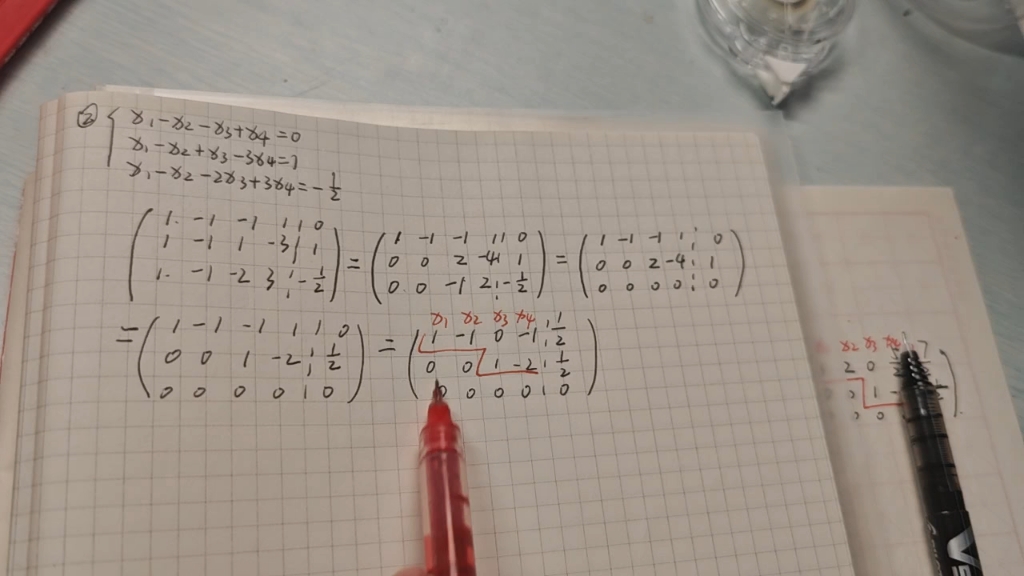 ② { x₁-x₂-x₃+x₄=0
x₁-x₂+x₃-3x₄=1
x₁-x₂-2x₃+3x₄=-1/2
( 1 -1 -1 1 | 0
1 -1 1 -3 | 1
1 -1 -2 3 | -1/2 )
= ( 1 -1 -1 1 | 0
0 0 2 -4 | 1
0 0 -1 2 | -1/2 )
= ( 1 -1 -1 1 | 0
0 0 2 -4 | 1
0 0 0 0 | 0 )
= ( 1 -1 -1 1 | 0
0 0 1 -2 | 1/2
0 0 0 0 | 0 )
x₁ x₂ x₃ x₄
= ( 1 -1 0 -1 | 1/2
0 0 1 -2 | 1/2
0 0 0 0 | 0 )
x₂ x₃
2 0
0 1
0 0
V5